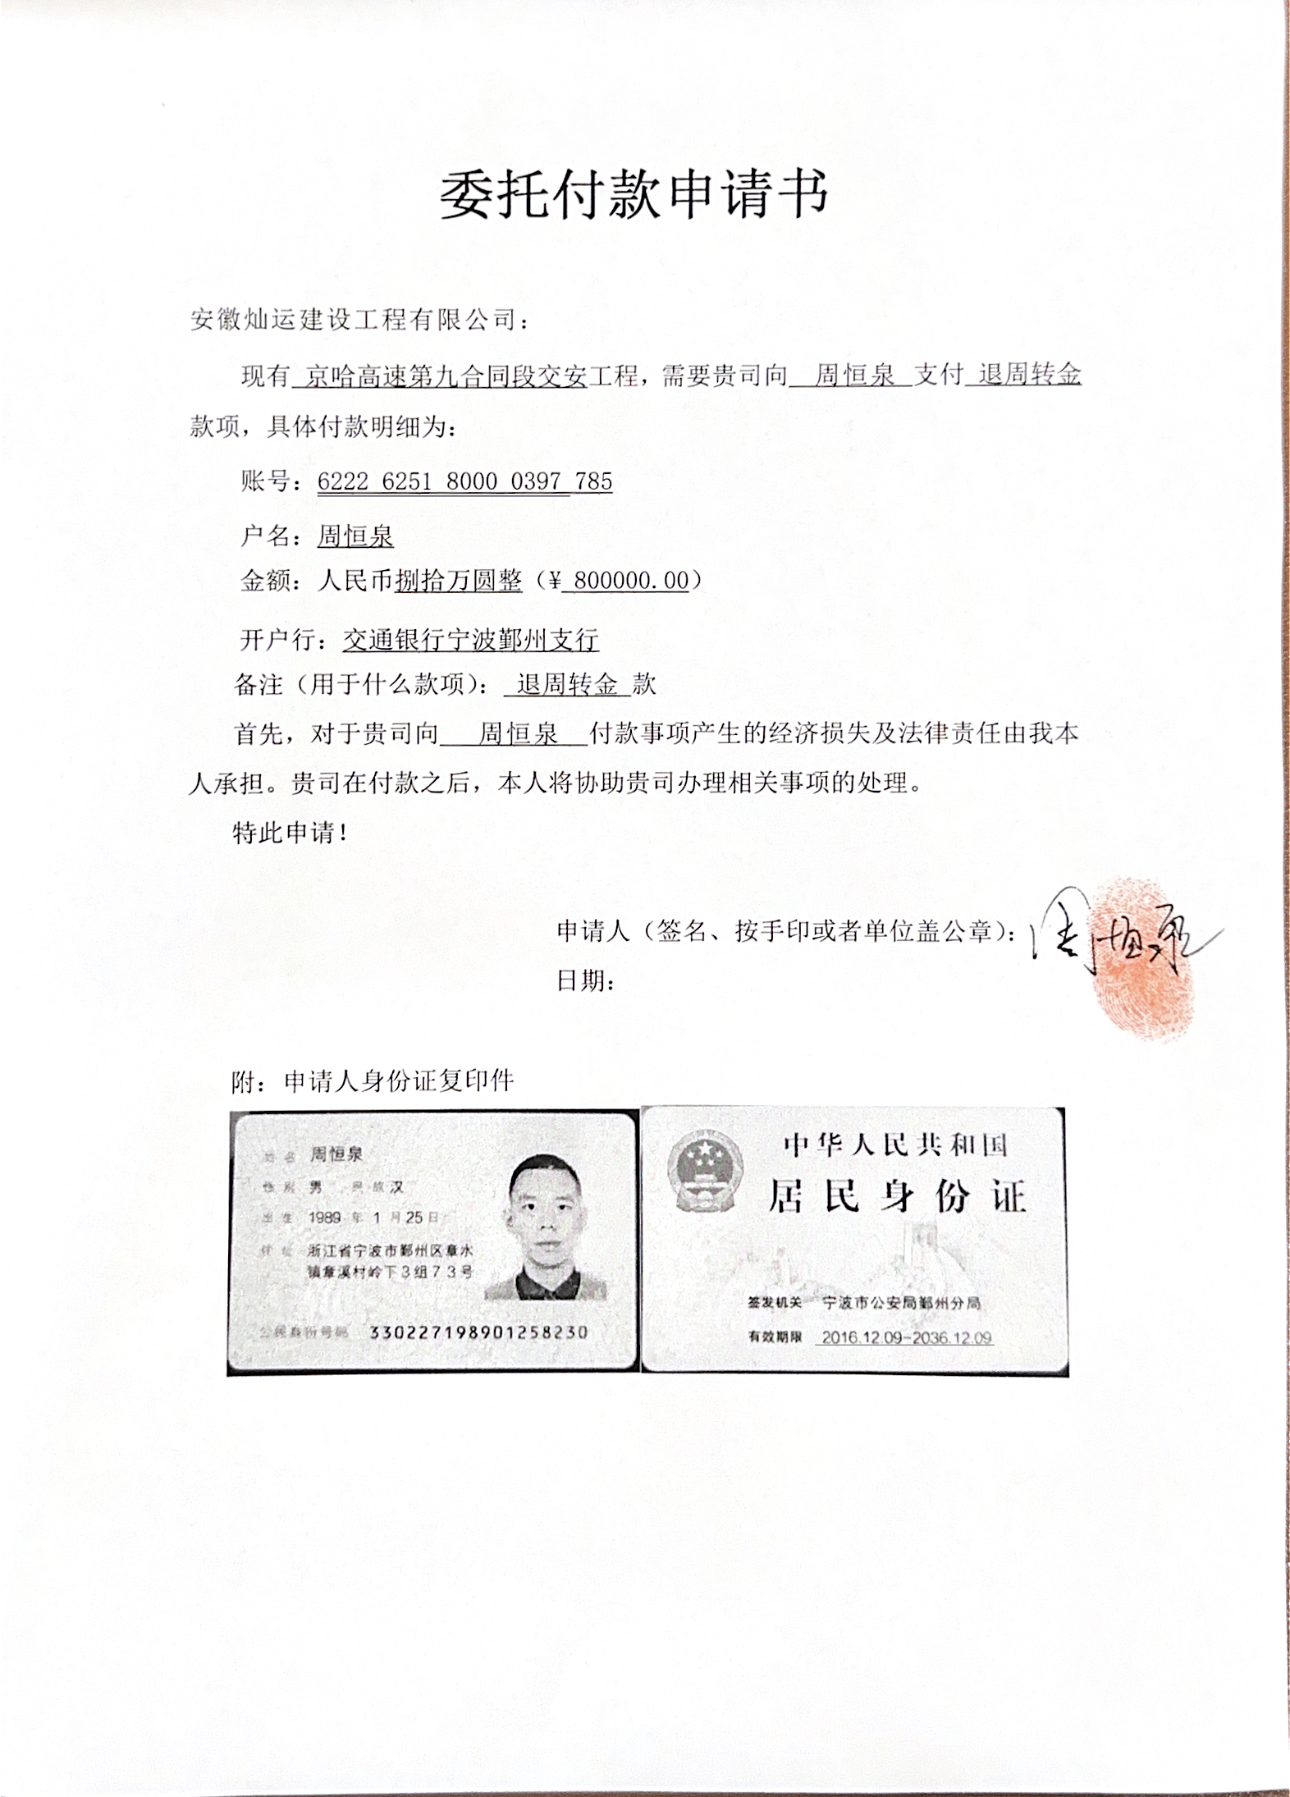 委托付款申请书
安徽灿运建设工程有限公司：
现有 京哈高速第九合同段交安工程，需要贵司向 周恒泉 支付 退周转金
款项，具体付款明细为：
账号：6222 6251 8000 0397 785
户名：周恒泉
金额：人民币捌拾万圆整（¥ 800000.00）
开户行：交通银行宁波鄞州支行
备注（用于什么款项）： 退周转金 款
首先，对于贵司向 周恒泉 付款事项产生的经济损失及法律责任由我本
人承担。贵司在付款之后，本人将协助贵司办理相关事项的处理。
特此申请！
申请人（签名、按手印或者单位盖公章）：周恒泉
日期：
附：申请人身份证复印件
姓名 周恒泉
性别 男 民族 汉
出生 1989 年 1 月 25 日
住址 浙江省宁波市鄞州区章水
镇章溪村岭下3组73号
公民身份号码 330227198901258230
中华人民共和国
居民身份证
签发机关 宁波市公安局鄞州分局
有效期限 2016.12.09-2036.12.09